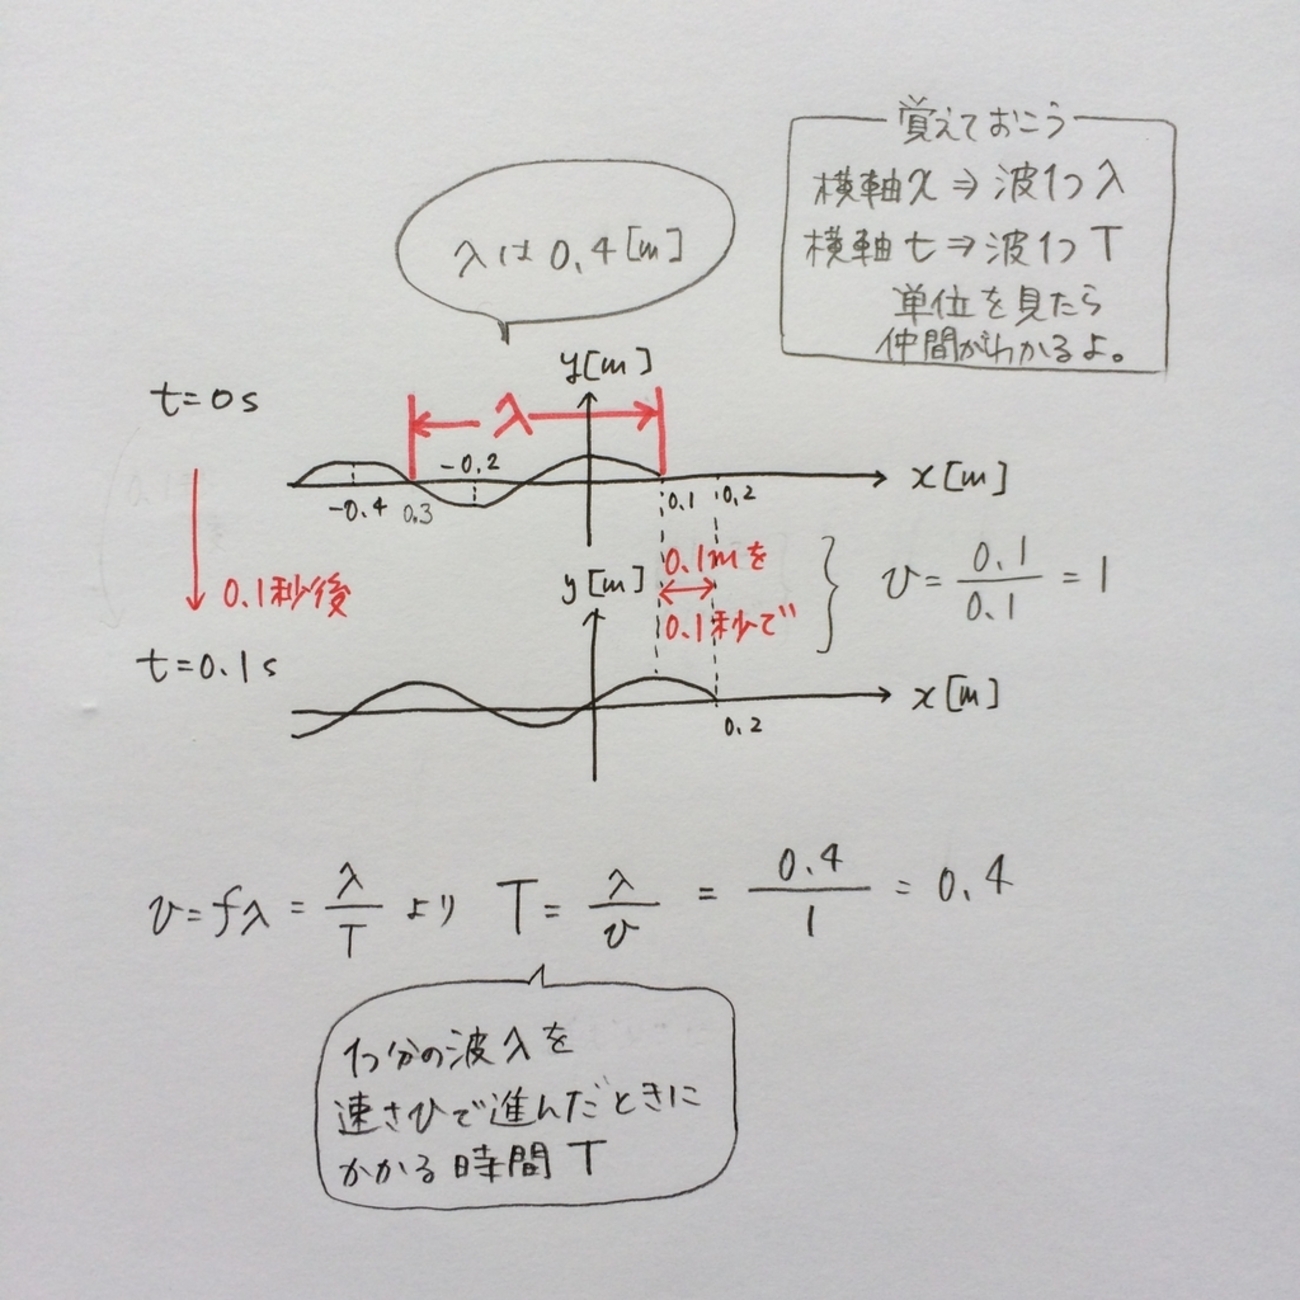 覚えておこう
横軸x⇒波1つλ
横軸t⇒波1つT
単位を見たら
仲間がわかるよ。
λは0.4[m]
y[m]
t=0s
λ
-0.2
x[m]
-0.4 0.3 0.1 0.2
0.1秒後
0.1mを
0.1秒で
v=0.1/0.1=1
y[m]
t=0.1s
x[m]
0.2
v=fλ=λ/Tより T=λ/v=0.4/1=0.4
1つ分の波λを
速さvで進んだときに
かかる時間T